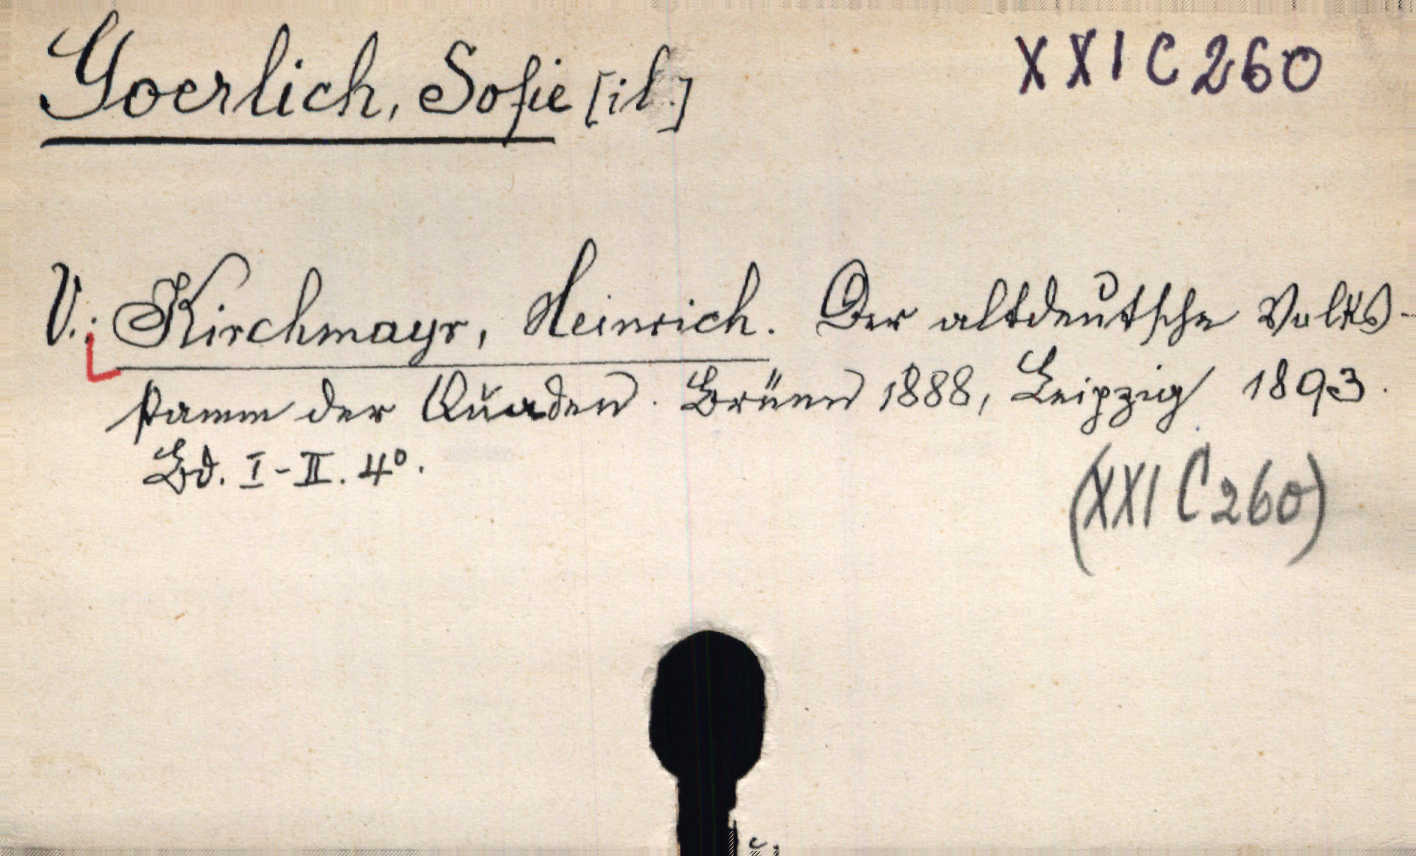 Goerlich, Sofie [il.]
XXI C 260
V.: Kirchmayr, Heinrich. Der altdeutsche Volks-
stamm der Quaden. Brünn 1888, Leipzig 1893.
Bd. I-II. 4°.
(XXI C 260)